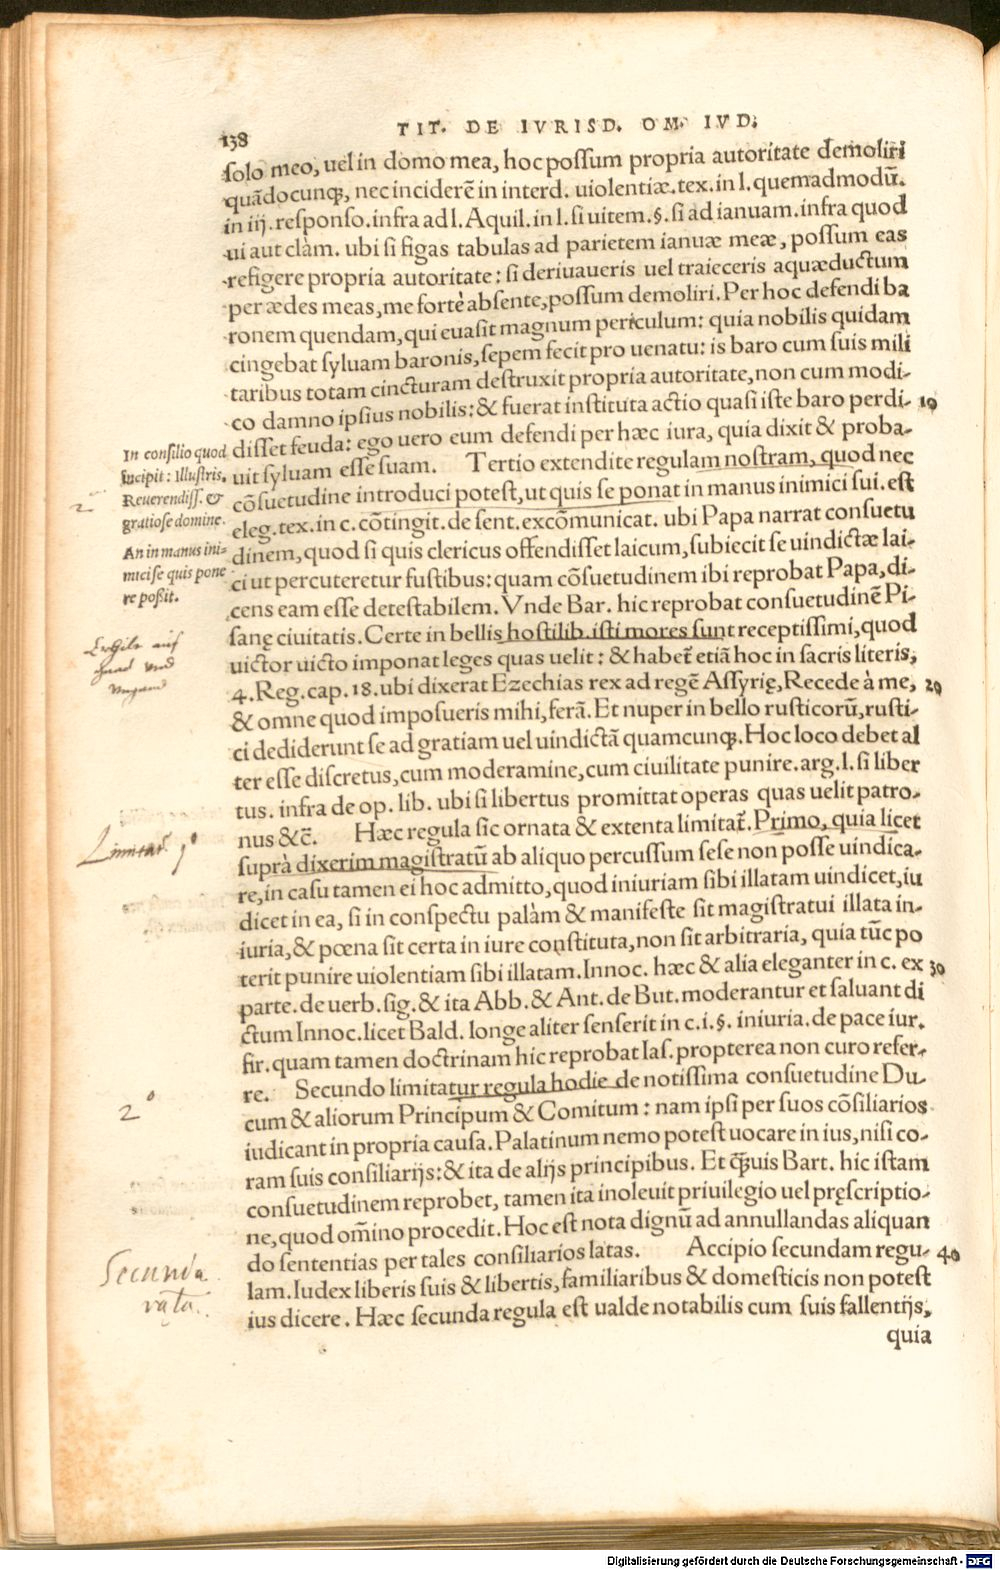 138
TIT. DE IVRISD. OM. IVD.
solo meo, uel in domo mea, hoc possum propria autoritate demoliri
quãdocunqꝫ, nec inciderẽ in interd. uiolentiæ. tex. in l. quemadmodũ.
in iij. responso. infra ad l. Aquil. in l. si uitem. §. si ad ianuam. infra quod
ui aut clàm. ubi si figas tabulas ad parietem ianuæ meæ, possum eas
refigere propria autoritate: si deriuaueris uel traieceris aquæductum
per ædes meas, me fortè absente, possum demoliri. Per hoc defendi ba
ronem quendam, qui euasit magnum periculum: quia nobilis quidam
cingebat syluam baronis, sepem fecit pro uenatu: is baro cum suis mili
taribus totam cincturam destruxit propria autoritate, non cum modi-
co damno ipsius nobilis: & fuerat instituta actio quasi iste baro perdi- 10
disset feuda: ego uero eum defendi per hæc iura, quia dixit & proba-
uit syluam esse suam. Tertio extendite regulam nostram, quod nec
cõsuetudine introduci potest, ut quis se ponat in manus inimici sui. est
eleg. tex. in c. cõtingit. de sent. excõmunicat. ubi Papa narrat consuetu
dinem, quod si quis clericus offendisset laicum, subiecit se uindictæ lai-
ci ut percuteretur fustibus: quam cõsuetudinem ibi reprobat Papa, di-
cens eam esse detestabilem. Vnde Bar. hic reprobat consuetudinẽ Pi-
sanę ciuitatis. Certe in bellis hostilib. isti mores sunt receptissimi, quod
uictor uicto imponat leges quas uelit: & habet̃ etiã hoc in sacris literis,
4. Reg. cap. 18. ubi dixerat Ezechias rex ad regẽ Assyrię, Recede à me, 20
& omne quod imposueris mihi, ferã. Et nuper in bello rusticorũ, rusti-
ci dediderunt se ad gratiam uel uindictã quamcunqꝫ. Hoc loco debet al
ter esse discretus, cum moderamine, cum ciuilitate punire. arg. l. si liber
tus. infra de op. lib. ubi si libertus promittat operas quas uelit patro-
nus &c̃. Hæc regula sic ornata & extenta limitat̃. Primo, quia licet
suprà dixerim magistratũ ab aliquo percussum sese non posse uindica-
re, in casu tamen ei hoc admitto, quod iniuriam sibi illatam uindicet, iu
dicet in ea, si in conspectu palàm & manifeste sit magistratui illata in-
iuria, & pœna sit certa in iure constituta, non sit arbitraria, quia tũc po
terit punire uiolentiam sibi illatam. Innoc. hæc & alia eleganter in c. ex 30
parte. de uerb. sig. & ita Abb. & Ant. de But. moderantur et saluant di
ctum Innoc. licet Bald. longe aliter senserit in c. i. §. iniuria. de pace iur.
fir. quam tamen doctrinam hic reprobat Ias. propterea non curo refer-
re. Secundo limitatur regula hodie de notissima consuetudine Du-
cum & aliorum Principum & Comitum: nam ipsi per suos cõsiliarios
iudicant in propria causa. Palatinum nemo potest uocare in ius, nisi co-
ram suis consiliarijs: & ita de alijs principibus. Et q̃uis Bart. hic istam
consuetudinem reprobet, tamen ita inoleuit priuilegio uel pręscriptio-
ne, quod om̃ino procedit. Hoc est nota dignũ ad annullandas aliquan
do sententias per tales consiliarios latas. Accipio secundam regu- 40
lam. Iudex liberis suis & libertis, familiaribus & domesticis non potest
ius dicere. Hæc secunda regula est ualde notabilis cum suis fallentijs,
quia
In consilio quod
incipit: Illustris.
Reuerendiss. &
gratiose domine.
An in manus ini-
mici se quis pone
re poßit.
2
1º
2º
Secunda